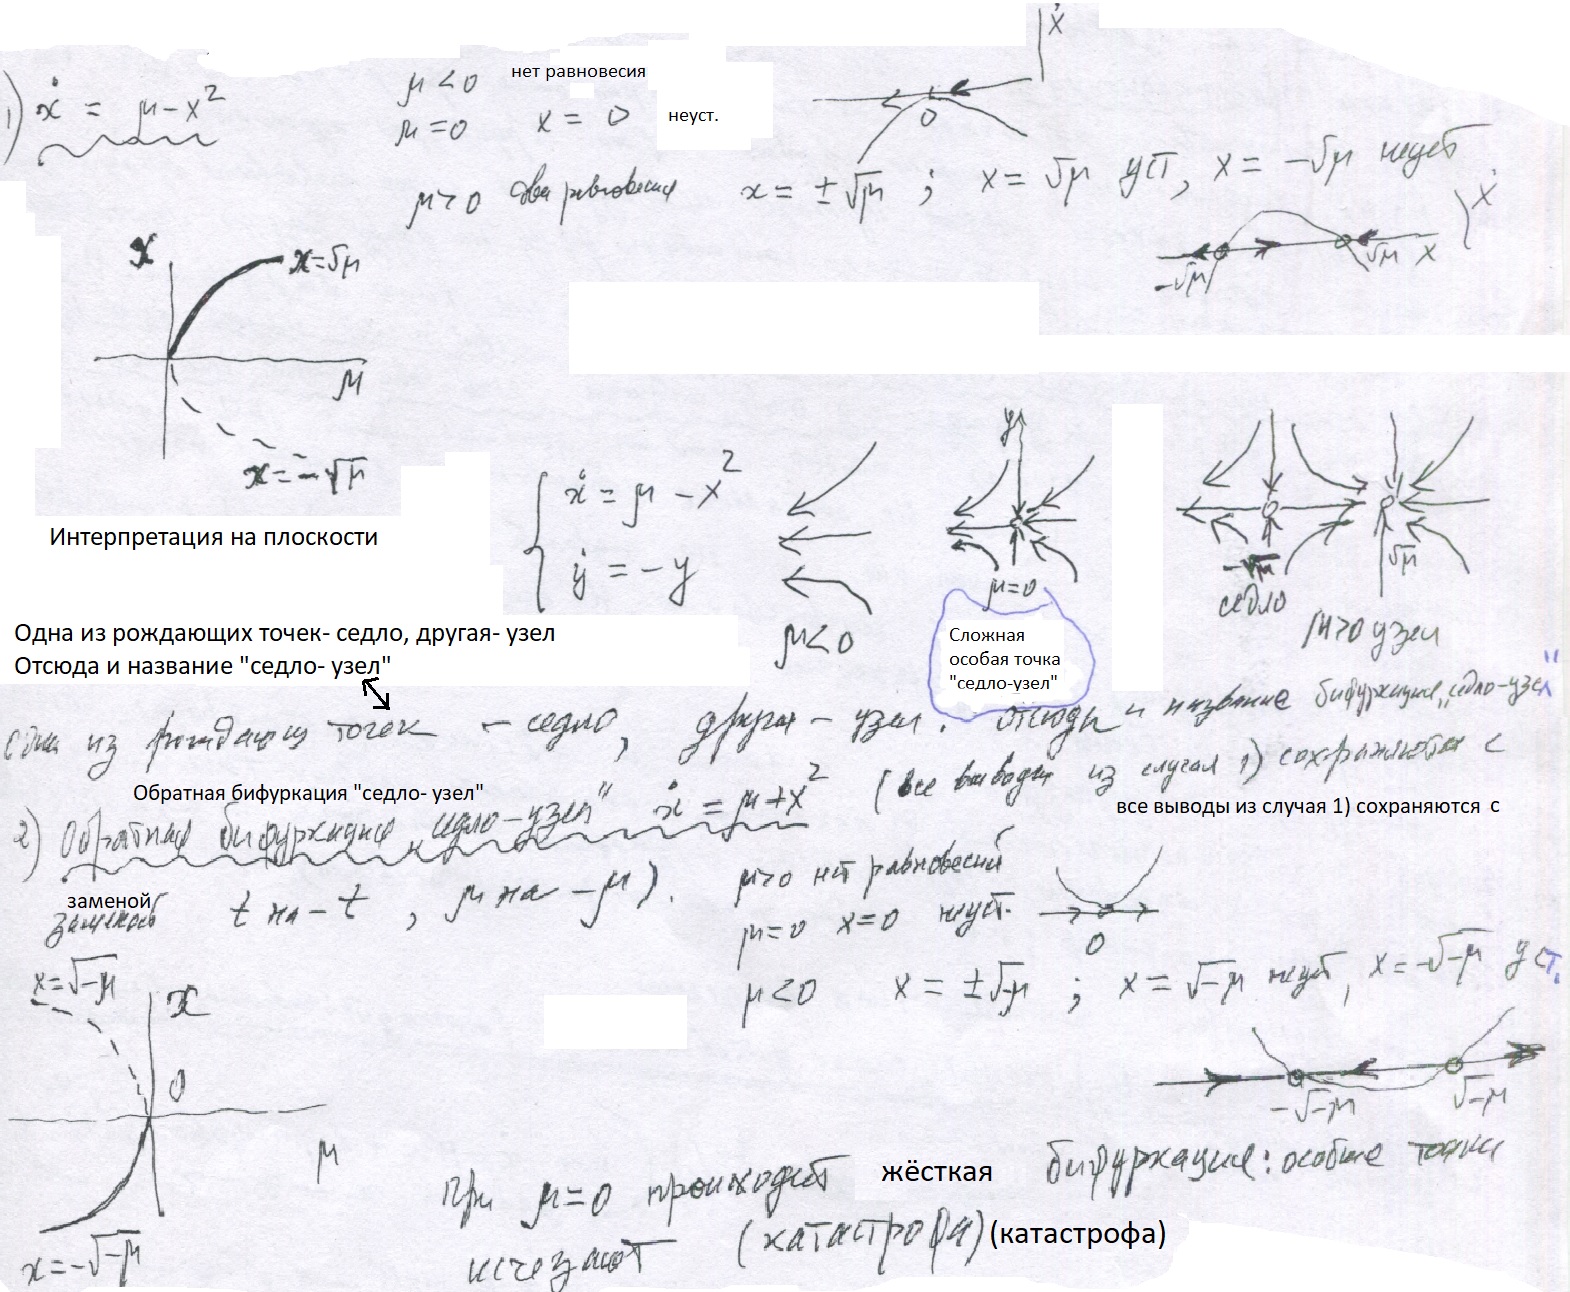 1) ẋ = μ - x²
μ < 0 нет равновесия
μ = 0 x = 0 неуст.
μ > 0 два равновесия x = ±√μ ; x = √μ уст, x = -√μ неуст
ẋ
0
ẋ
-√μ √μ x
x x=√μ
μ
x=-√μ
Интерпретация на плоскости
{ ẋ = μ - x²
ẏ = -y
μ<0
y
μ=0
Сложная
особая точка
"седло-узел"
-√μ √μ
седло
μ>0 узел
Одна из рождающих точек- седло, другая- узел
Отсюда и название "седло- узел"
одна из рождающих точек - седло, другая - узел. отсюда и название бифуркации „седло-узел"
Обратная бифуркация "седло- узел"
2) Обратная бифуркация „седло-узел" ẋ = μ + x² (все выводы из случая 1) сохраняются с
все выводы из случая 1) сохраняются с
заменой
заменой t на -t , μ на -μ ).
μ>0 нет равновесий
μ=0 x=0 неуст.
0
μ<0 x = ±√-μ ; x = √-μ неуст, x = -√-μ уст.
-√-μ √-μ
x=√-μ
x
0
μ
x=-√-μ
При μ=0 происходит жёсткая бифуркация: особые точки
исчезают (катастрофа) (катастрофа)